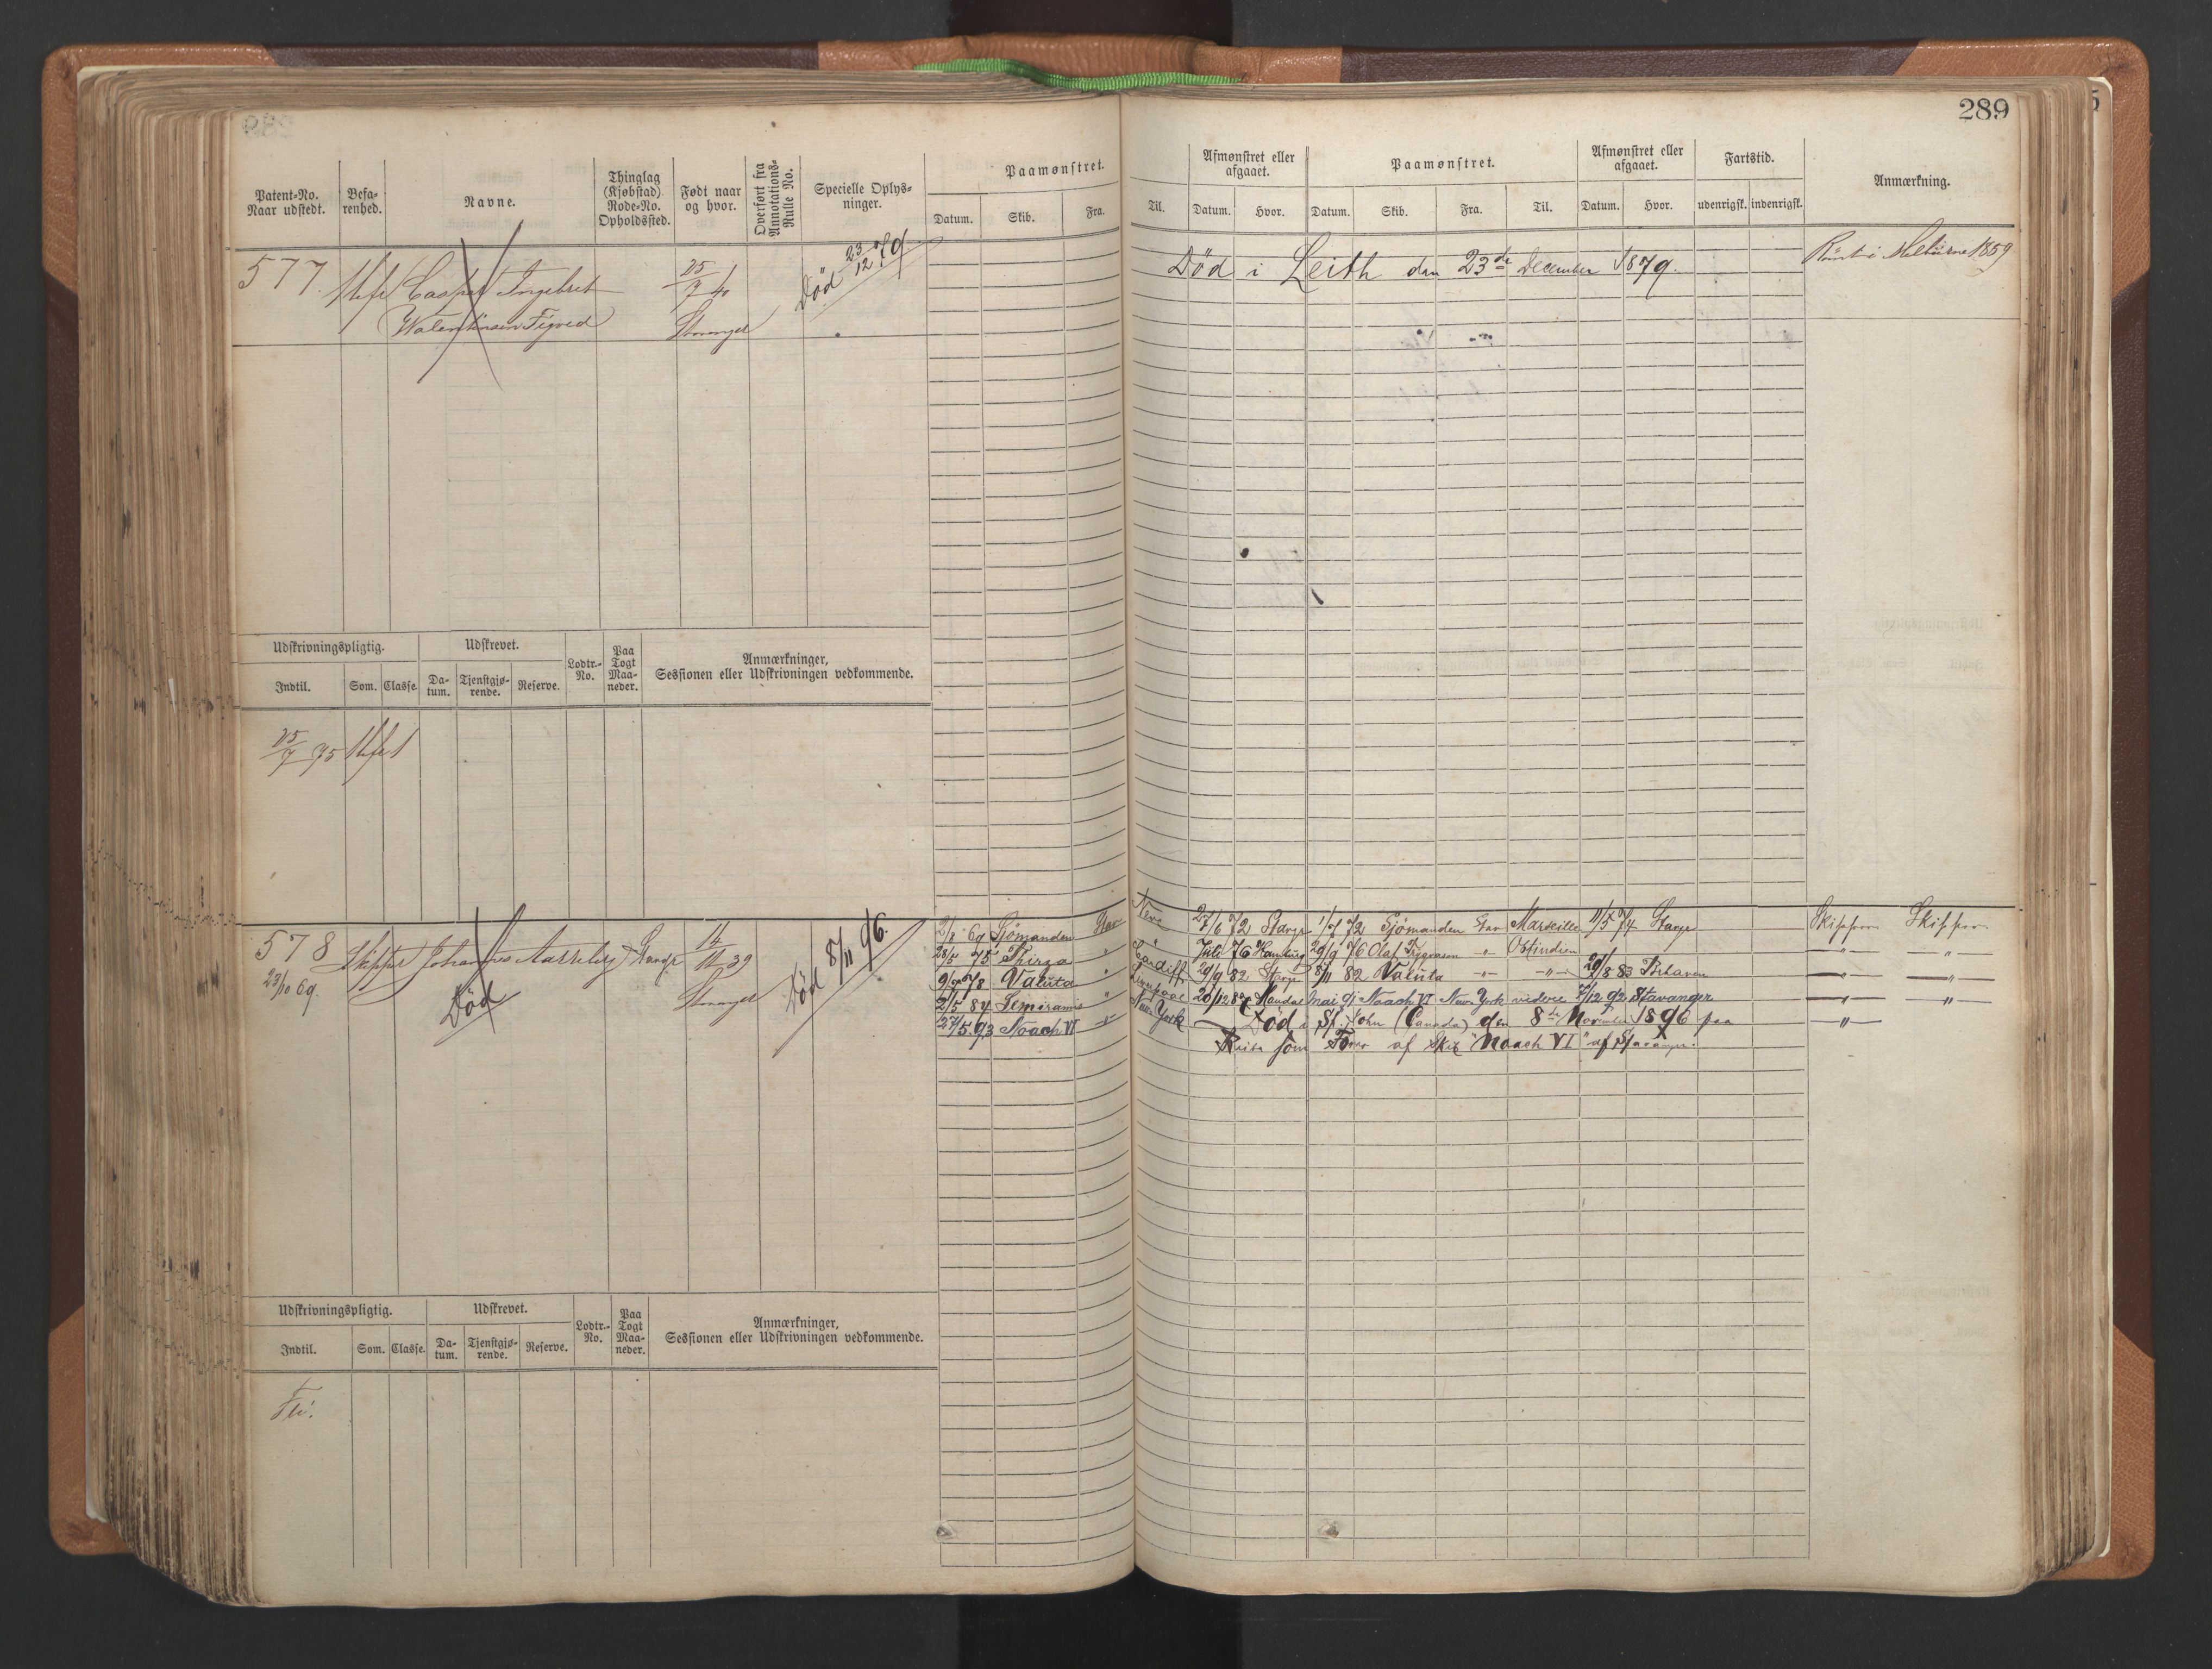 289
Patent-No. Naar udstedt.
Befarenhed.
Navne.
Thinglag (Kjøbstad) Rode-No. Opholdssted.
Født naar og hvor.
Overført fra Annotations-Rulle No.
Specielle Oplysninger.
Paamønstret.
Datum. Skib. Fra. Til.
Afmønstret eller afgaaet.
Datum. Hvor.
Paamønstret.
Datum. Skib. Fra. Til.
Afmønstret eller afgaaet.
Datum. Hvor.
Fartstid.
udenrigsk. indenrigsk.
Anmærkning.
577. Casper Ingebret
25/7 40
Død 23/12 79
Død i Leith den 23de December 1879.
Rømt i Melburne 1859
Walentinsen Figved
Stavanger
Udskrivningspligtig.
Udskrevet.
Lodtr.-No.
Paa Togt Maaneder.
Anmærkninger, Sessionen eller Udskrivningen vedkommende.
Indtil. Som. Classe. Datum. Tjenstgjørende. Reserve.
25/7 75
578 Skipper Johannes Aarreberg
23/10 69.
Død
14/11 39
Stavanger
Død 8/11 96.
69 Sjömanden Stav Neva
27/6 72 Stavgr 1/7 72 Sjömanden Stav Marseille 11/5 74 Stavgr Skipper Skipper
28/5 75 Thirza " "
Juli 76 Hamburg 29/9 76 Olaf Trygvason -"- Ostindien -"- -"-
9/7 78 Valuta " Cardiff
29/9 82 Stavgr 8/11 82 Valuta -"- -"- 20/8 83 -"- -"-
2/5 84 Semiramis " Liverpool
20/12 87 Mandal mai 91 Noach VI New York videre 7/12 92 Stavanger -"- -"-
27/5 93 Noach VI -"- New York
Død i St. John (Canada) den 8de November 1896 paa -"-
Reise som Fører af Skib "Noach VI" af Stavanger.
Udskrivningspligtig.
Udskrevet.
Lodtr.-No.
Paa Togt Maaneder.
Anmærkninger, Sessionen eller Udskrivningen vedkommende.
Indtil. Som. Classe. Datum. Tjenstgjørende. Reserve.
Fri.